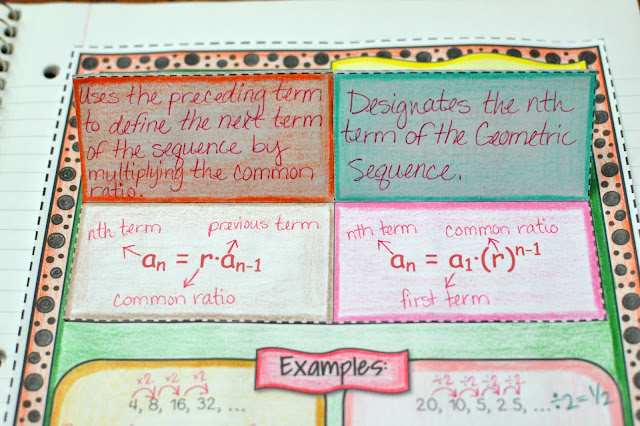 Uses the preceding term
to define the next term
of the sequence by
multiplying the common
ratio.
Designates the nth
term of the Geometric
Sequence.
nth term previous term
aₙ = r·aₙ₋₁
common ratio
nth term common ratio
aₙ = a₁·(r)ⁿ⁻¹
first term
Examples:
×2 ×2 ×2
4, 8, 16, 32, ...
÷2 ÷2 ÷2 ÷2
20, 10, 5, 2.5, ... ÷2 = 1/2